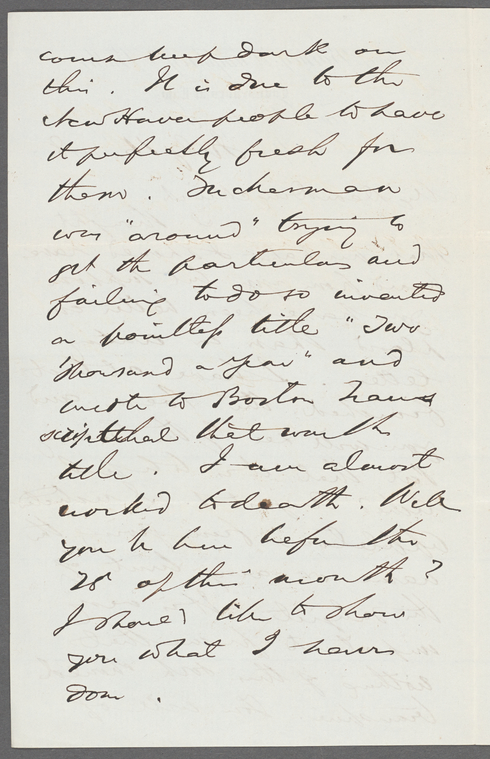 course keep dark on
this. It is due to the
New Haven people to have
it perfectly fresh for
them. Tuckerman
was "around" trying to
get the particulars and
failing to do so invented
a pointless title "Two
thousand a year" and
wrote to Boston Trans
script that that was the
title. I am almost
worked to death. Will
you be here before the
25 of this month?
I should like to show
you what I have
done.